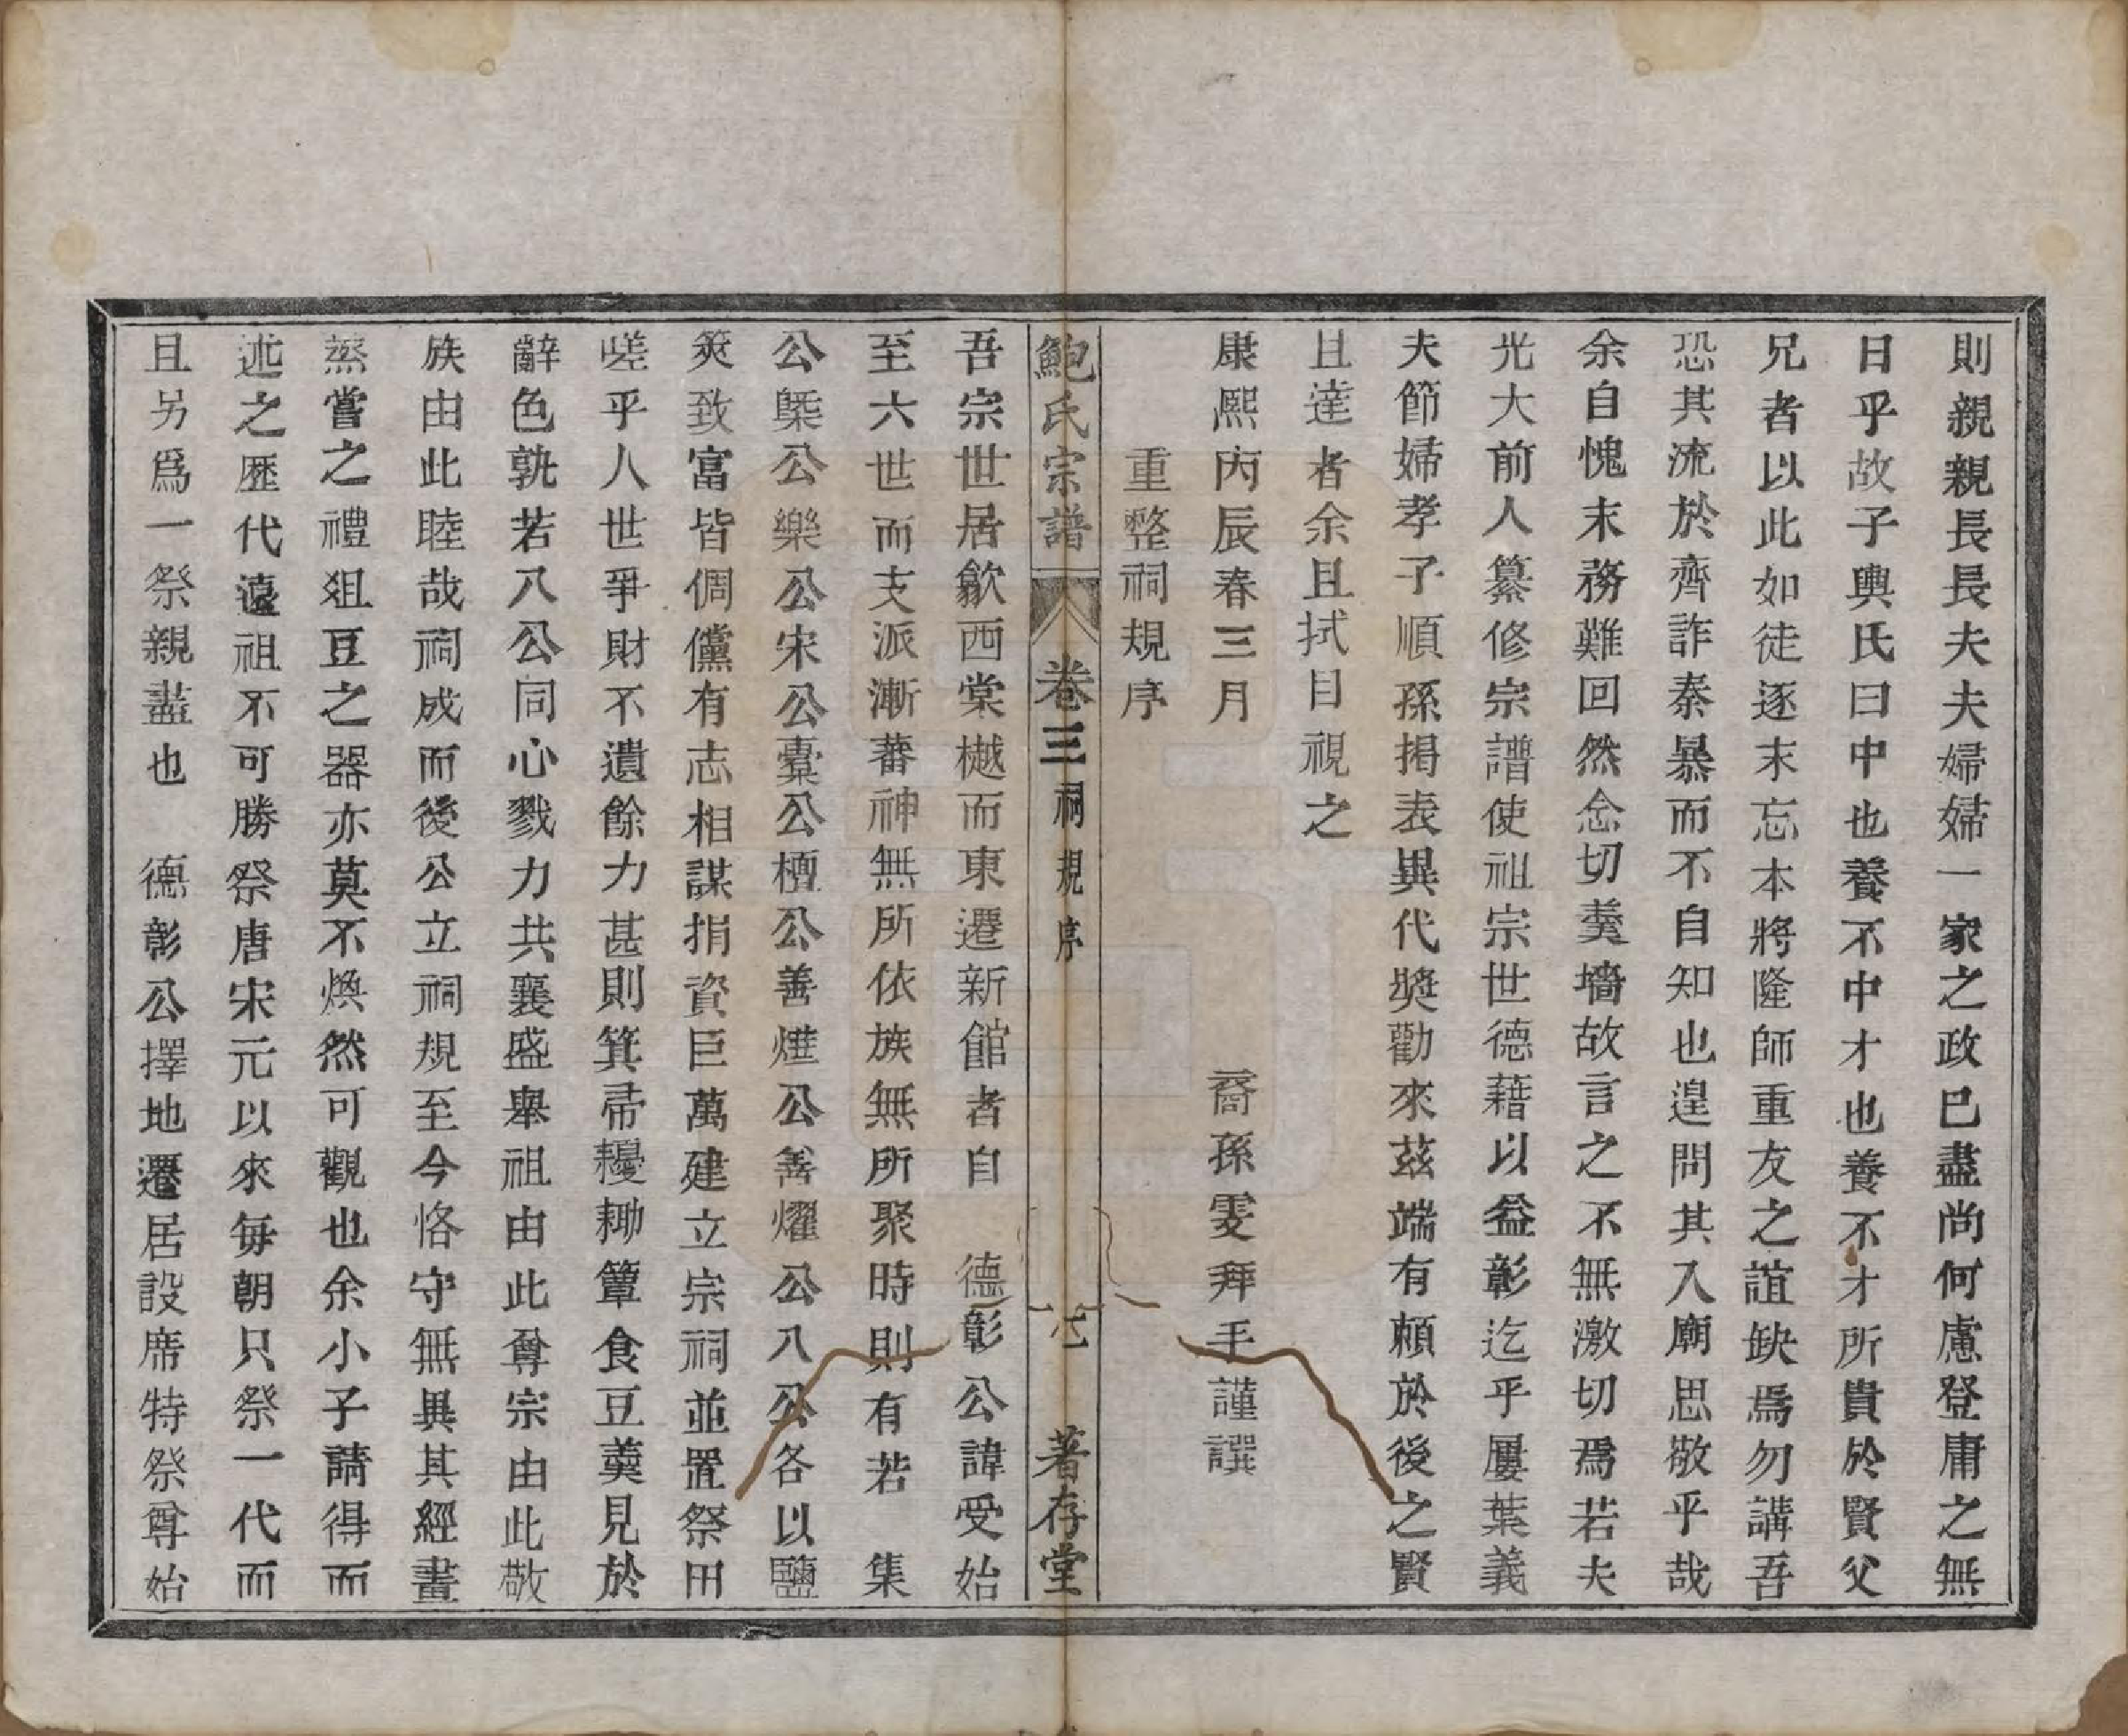 則親親長長夫夫婦婦一家之政巳盡尚何慮登庸之無
日乎故子輿氏曰中也養不中才也養不才所貴於賢父
兄者以此如徒逐末忘本將隆師重友之誼缺焉勿講吾
恐其流於齊詐秦暴而不自知也遑問其入廟思敬乎哉
余自愧末務難回然念切羹墻故言之不無激切焉若夫
光大前人纂修宗譜使祖宗世德藉以益彰迄乎屢葉義
夫節婦孝子順孫揭表異代奬勸來茲端有賴於後之賢
且達者余且拭目視之
康熙丙辰春三月 裔孫雯拜手謹譔
重整祠規序
鮑氏宗譜 卷三 祠規序 七 著存堂
吾宗世居歙西棠樾而東遷新館者自 德彰公諱受始
至六世而支派漸蕃神無所依族無所聚時則有若 集
公槩公樂公宋公橐公檀公善燁公善燿公八公各以鹽
筴致富皆倜儻有志相謀捐資巨萬建立宗祠並置祭田
嗟乎人世爭財不遺餘力甚則箕帚耰鋤簞食豆羹見於
辭色孰若八公同心戮力共襄盛舉祖由此尊宗由此敬
族由此睦哉祠成而後公立祠規至今恪守無異其經畫
蒸嘗之禮俎豆之器亦莫不煥然可觀也余小子請得而
述之歷代遠祖不可勝祭唐宋元以來每朝只祭一代而
且另爲一祭親盡也 德彰公擇地遷居設席特祭尊始